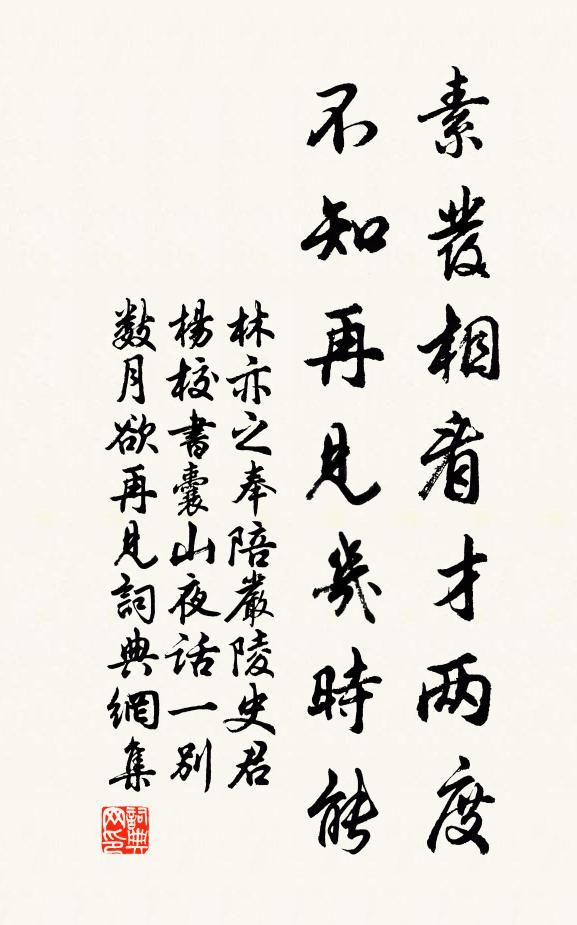 素发相看才两度
不知再见几時能
林亦之奉陪嚴陵史君
楊校書囊山夜话一别
数月欲再見詞典網集
詞典网印